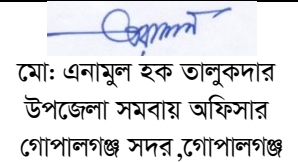 মো: এনামুল হক তালুকদার
উপজেলা সমবায় অফিসার
গোপালগঞ্জ সদর,গোপালগঞ্জ